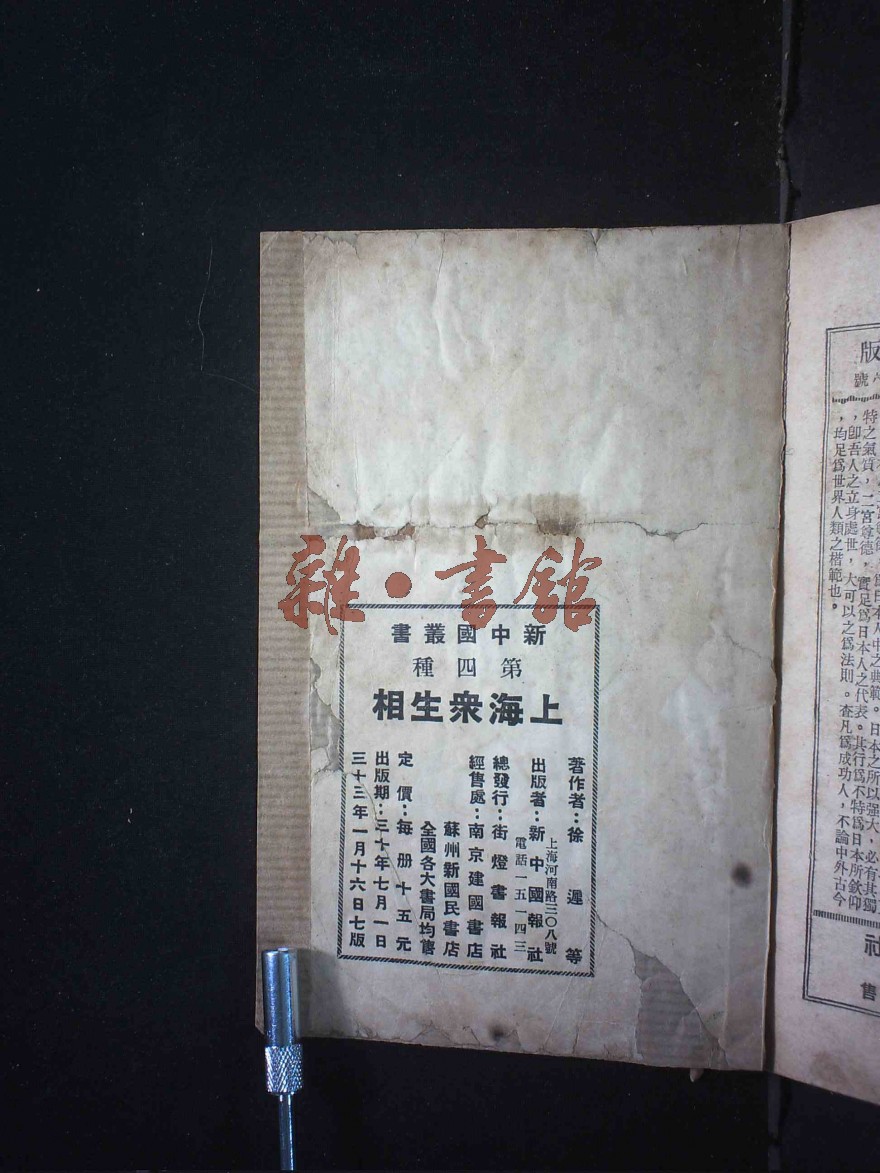 雜·書館
新中國叢書
第四種
上海衆生相
著作者：徐遲等
出版者：新中國報社
上海河南路三〇八號
電話一五一四三
總發行：街燈書報社
經售處：南京建國書店
蘇州新國民書店
全國各大書局均售
定價：每册十五元
出版期：三十年七月一日
三十三年一月十六日七版
版
號
日本之所以强大，必有其獨
特之氣質，二宮尊德，實足爲日本人之代表。其行爲不特爲日本所欽仰
，卽吾人之立身處世，大可以之爲法則。查凡爲成功人，不論中外古今
，均足爲世界人類之楷範也。
社
售